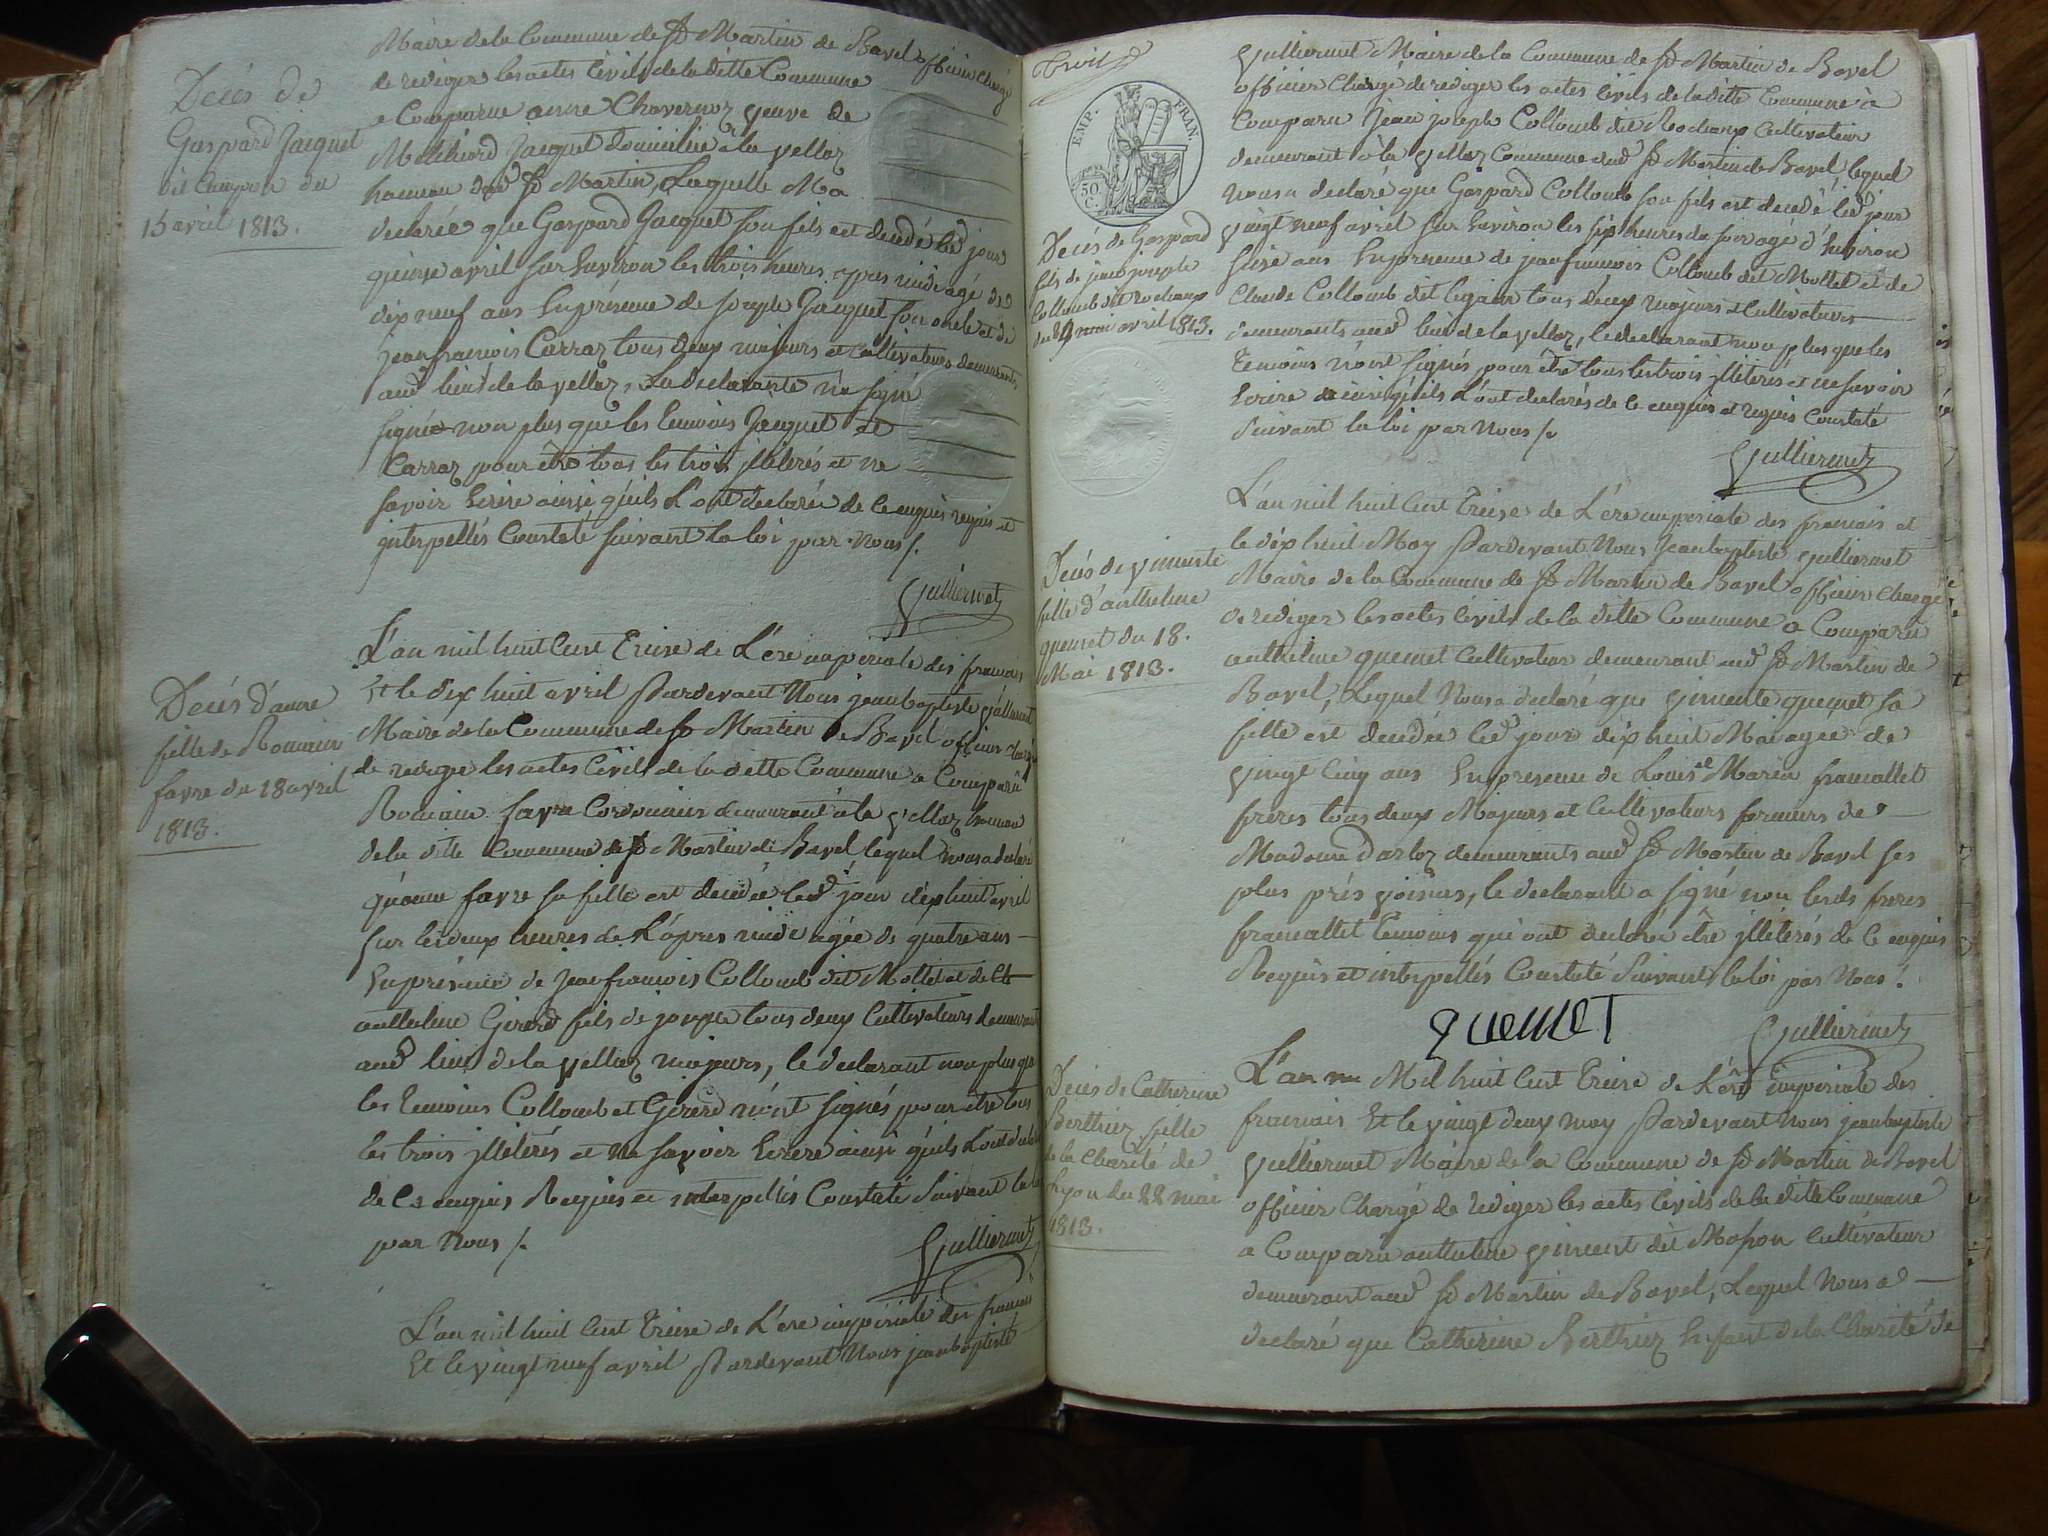 Maire de la Commune de St Martin de Bavel officier chargé
de rediger les actes Civils de la ditte Commune
a Comparue anne Chavernoz veuve de
Melchiord Jacquet domiciliée à la vellaz
hameau dud St Martin, Laquelle Ma
declarée que Gaspard Jacquet son fils est decedé led jour
quinze avril sur Environ les trois heures apres midi agé de
dix neuf ans En présence de joseph Jacquet son oncle et de
jean françois Carraz tous deux majeurs et Cultivateurs demeurants
aud lieu de la vellaz, La declarante n'a signé
signée non plus que les temoins Jacquet et
Carraz pour être tous les trois illiterés et ne
savoir Ecrire ainsi qu'ils L'ont declarée de ce enquis requis et
interpellés Constaté suivant la loi par nous /.
Gulliermet
Decés de
Gaspard Jacquet
dit du
15 avril 1813.
L'an mil huit Cent Treise de L'ére imperiale des francais
Et le dix huit avril Pardevant Nous jean baptiste Gulliermet
Maire de la Commune de St Martin de Bavel officier chargé
de rediger les actes Civils de la ditte Commune a Comparu
Romain favre Cordonnier demeurant à la vellaz hameau
de la ditte Commune de St Martin de Bavel lequel nous a declaré
qu'anne favre sa fille est decedée led jour dix huit avril
sur les deux heures de L'après midi agée de quatre ans —
En présence de jean francois Collomb dit Mollet et de Cl
anthelme Girerd fils de joseph tous deux Cultivateurs demeurant
aud lieu de la vellaz majeurs, le declarant non plus que
les Temoins Collomb et Girerd n'ont signés pour etre tous
les trois illiterés et ne savoir Ecrire ainsi qu'ils L'ont declaré
de Ce enquis Requis et interpellés Constaté Suivant la loi
par Nous /.
Gulliermet
Decés d'anne
fille de Romain
favre du 18 avril
1813.
L'an mil huit Cent Treise de L'ére impériale des francais
Et le vingt neuf avril Pardevant Nous jean baptiste
Trois
EMP. FRAN.
50 C.
Gulliermet Maire de la Commune de St Martin de Bavel
officier Chargé de rediger les actes Civils de la ditte Commune à
Comparu Jean joseph Collomb dit Rochaux Cultivateur
demeurant à la vellaz Commune dud St Martin de Bavel lequel
nous a declaré que Gaspard Collomb son fils est decedé led jour
vingt neuf avril sur Environ les six heures du soir agé d'Environ
seise ans En presence de jean francois Collomb dit Mollet et de
Claude Collomb dit tous deux majeurs et Cultivateurs —
demeurants aud lieu de la vellaz, le declarant non plus que les
Temoins n'ont signés pour être tous les trois illiterés et ne savoir
Ecrire ainsi qu'ils L'ont declarés de Ce enquis et requis Constaté
Suivant la loi par Nous /.
Gulliermet
Decés de Gaspard
fils de jean joseph
Collomb dit Rochaux
du 29 avril 1813.
L'an mil huit Cent Treise de L'ére imperiale des francais et
le dix huit May Pardevant Nous Jean baptiste Gulliermet
Maire de la Commune de St Martin de Bavel officier chargé
de rediger les actes Civils de la ditte Commune a Comparu
anthelme quemet Cultivateur demeurant aud St Martin de
Bavel, Lequel Nous a declaré que vincente quemet sa
fille est decedée led jour dix huit Mai agée de
vingt Cinq ans En presence de Louis et Marin francallet
freres tous deux Majeurs et Cultivateurs fermiers de —
Madame Darloz demeurants aud St Martin de Bavel ses
plus prés voisins, le declarant a signé non lesds freres
francallet temoins qui ont declarée être illiterés de Ce enquis
Requis et interpellés Constaté Suivant la loi par Nous /.
quemet
Gulliermet
Decés de vincente
fille d'anthelme
quemet du 18.
Mai 1813.
L'an Mil huit Cent Treise de L'ére impériale des
francais Et le vingt deux may Pardevant Nous jean baptiste
Gulliermet Maire de la Commune de St Martin de Bavel
officier Chargé de rediger les actes Civils de la ditte Commune
a Comparu anthelme vincent dit Cultivateur
demeurant aud St Martin de Bavel, Lequel Nous a —
declaré que Catherine Berthiez Enfant de la Charité de
Decés de Catherine
Berthiez fille
de la Charité de
Lyon du 22 mai
1813.